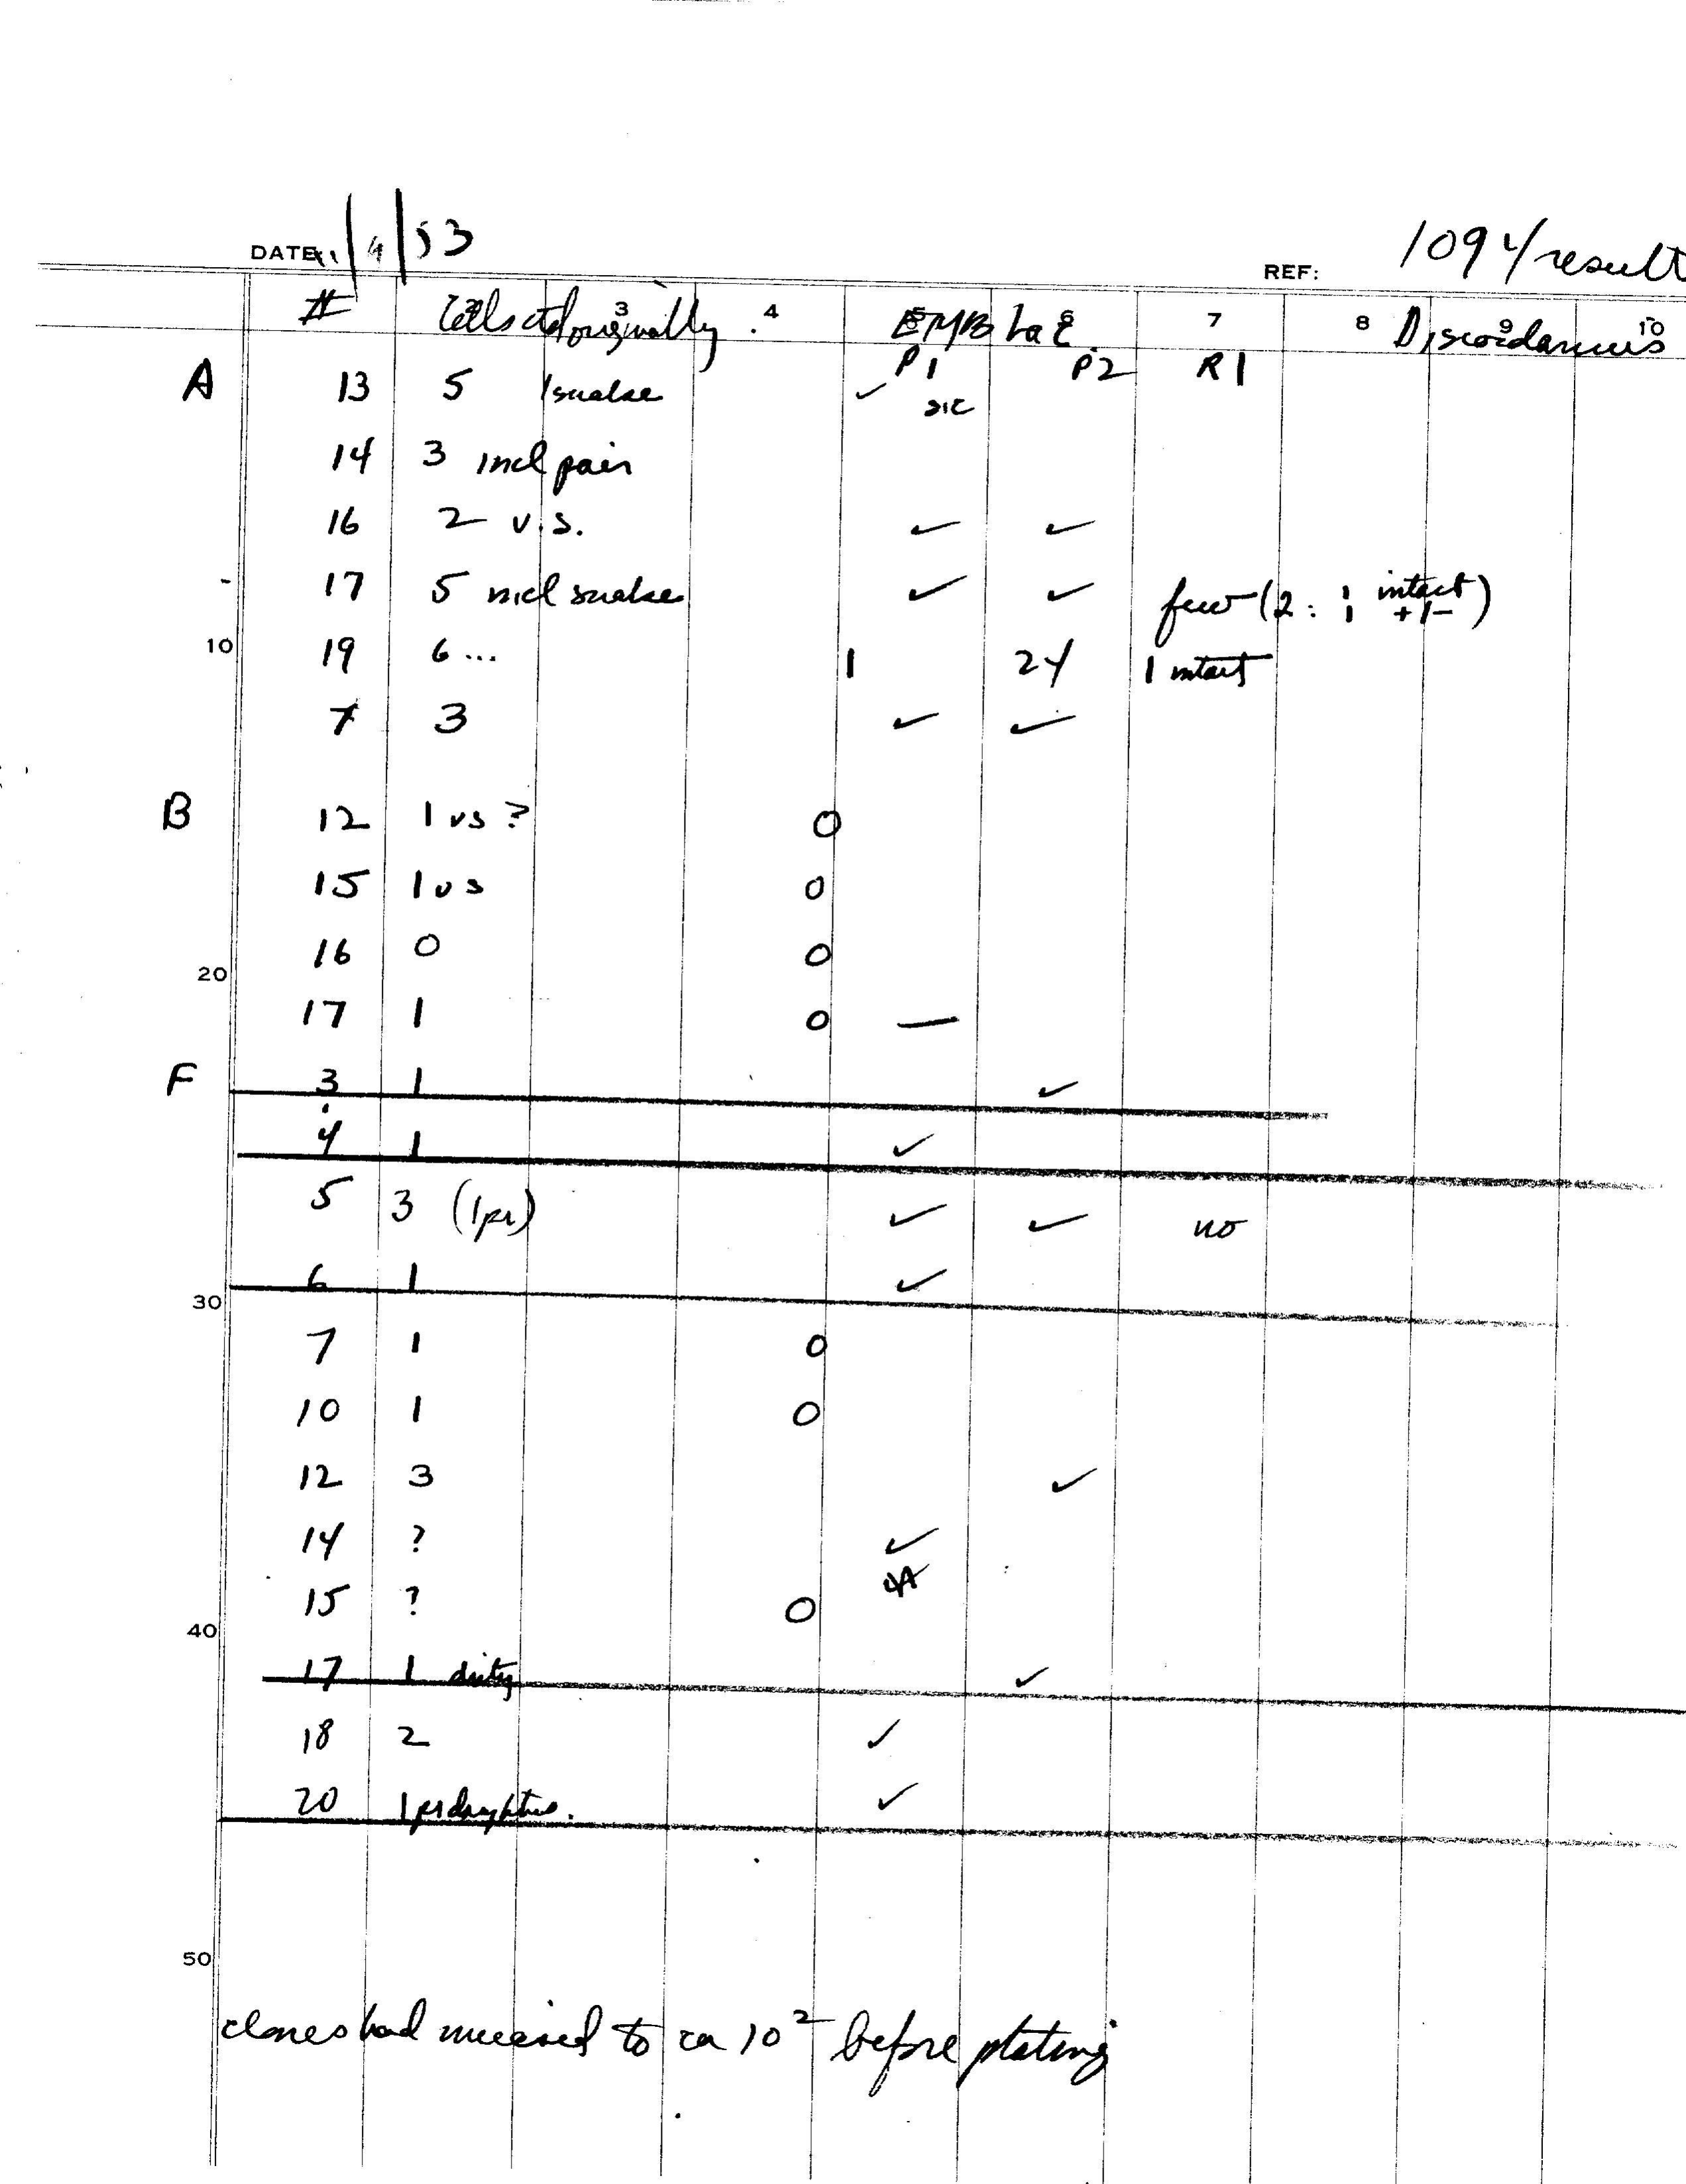 DATE: 11/4/53 REF: 1094/result
# Cells ctd originally. 3 4 EMB Lac 7 8 Discordances 10
P1 P2 R1
A 13 5 1 snake ✓ sic
14 3 incl pair
16 2 v.s. ✓ ✓
- 17 5 incl snake ✓ ✓ few (2: 1 intact
1 +/-)
10 19 6 ... 1 24 1 intact
7 3 ✓ ✓
B 12 1 vs ? 0
15 1 vs 0
16 0 0
20
17 1 0 —
F 3 1 ✓
4 1 ✓
5 3 (1 pr) ✓ ✓ no
6 1 ✓
30
7 1 0
10 1 0
12 3 ✓
14 ? ✓
15 ? 0
40
17 1 dirty ✓
18 2 ✓
20 1 pr daughters. ✓
50
clones had increased to ca 10² before plating